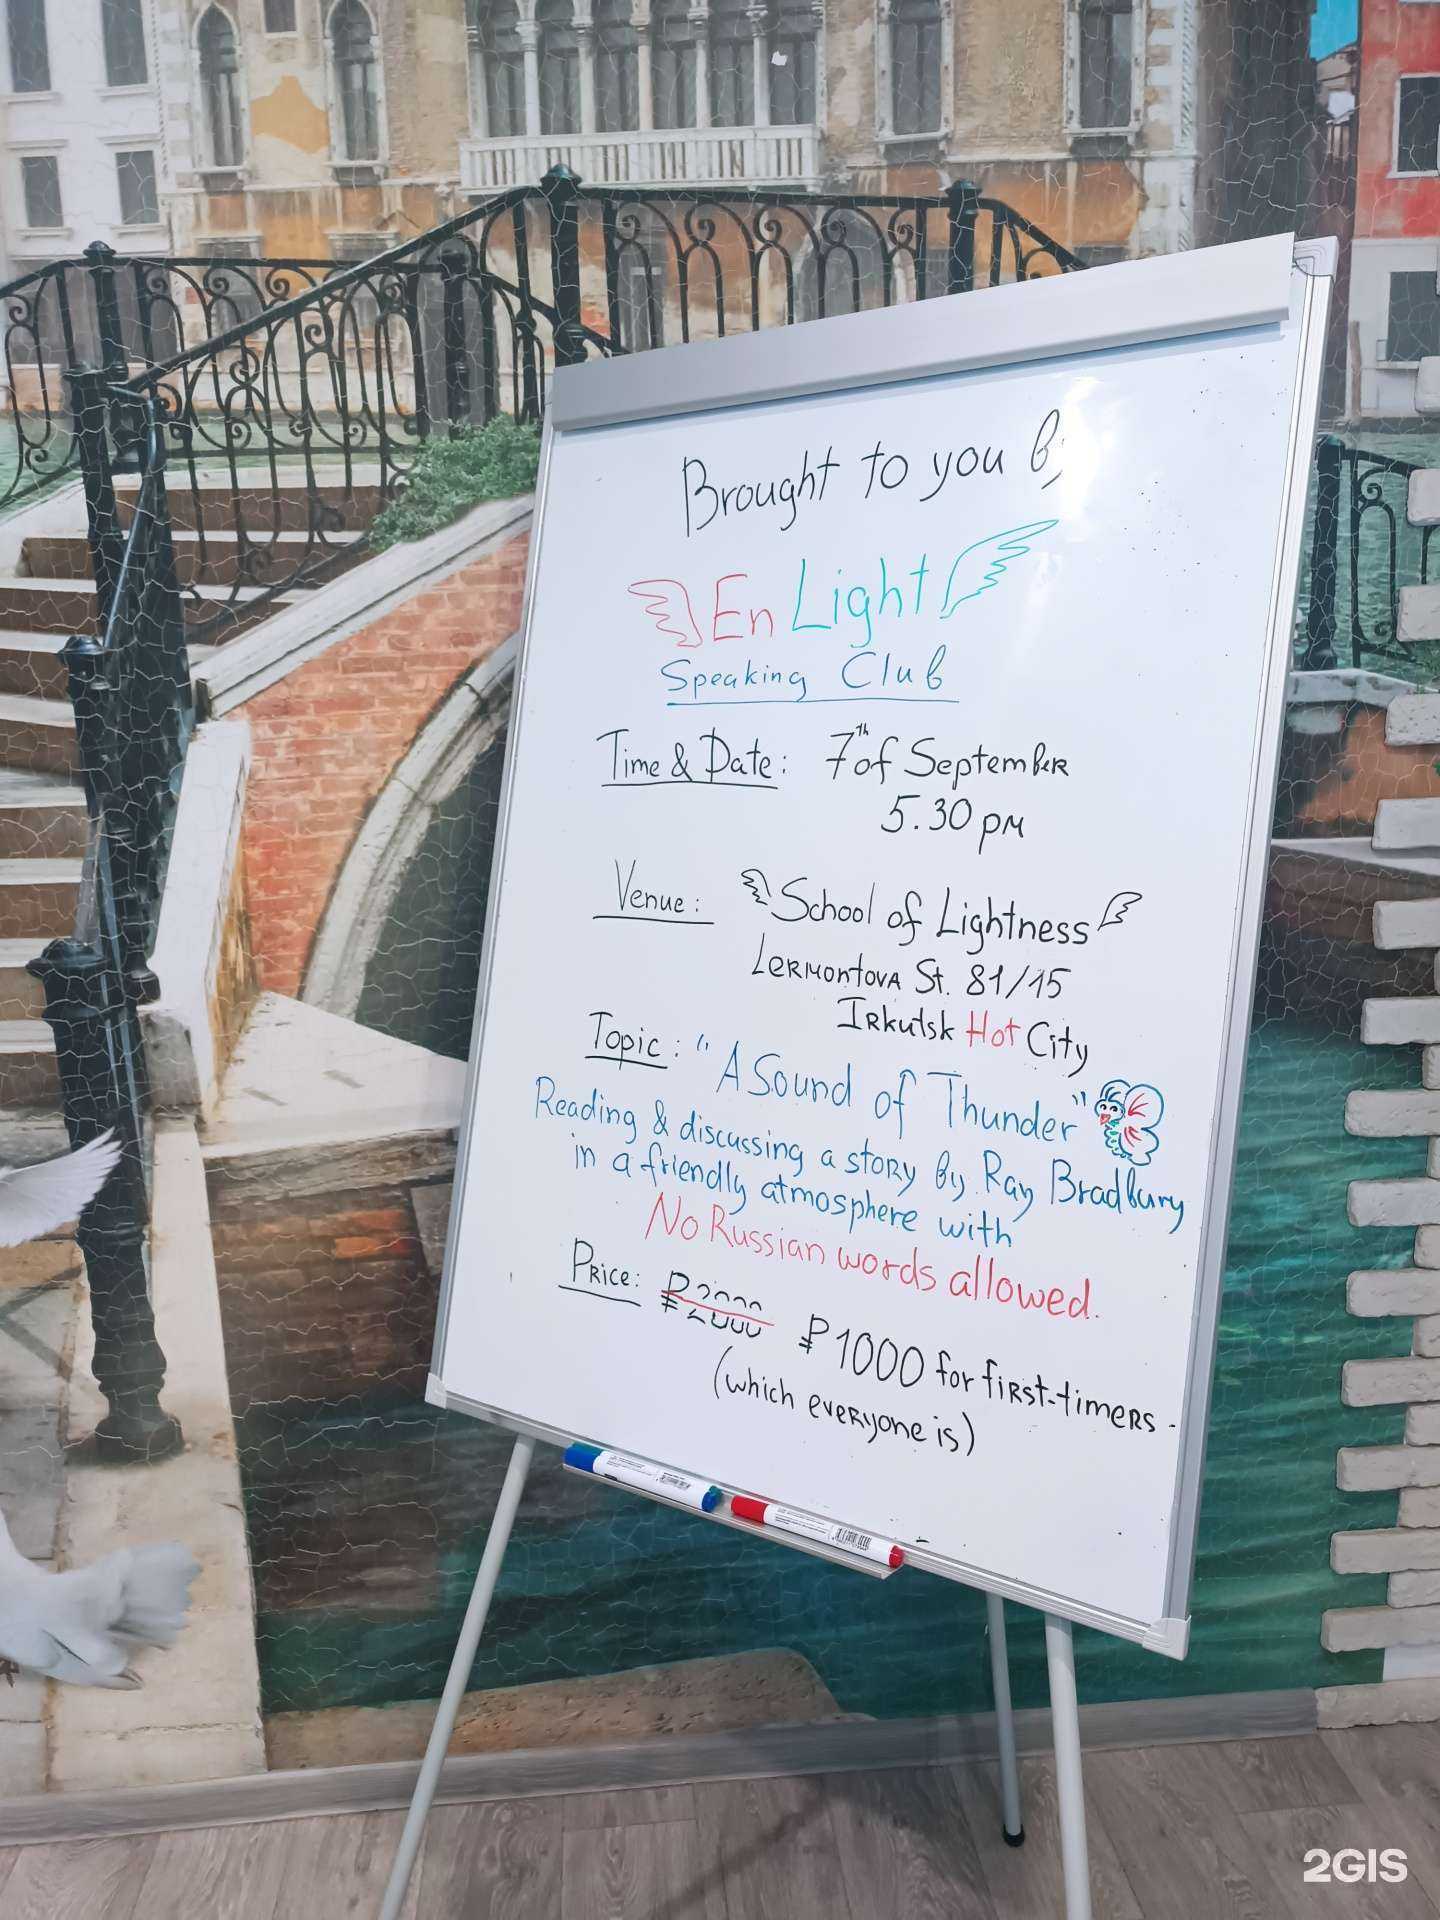 Brought to you by
EnLight
Speaking Club
Time & Date: 7th of September
5.30 pm
Venue: School of Lightness
Lermontova St. 81/15
Irkutsk Hot City
Topic: "A Sound of Thunder"
Reading & discussing a story by Ray Bradbury
in a friendly atmosphere with
No Russian words allowed.
Price: ₽2000 ₽1000 for first-timers
(which everyone is)
2GIS